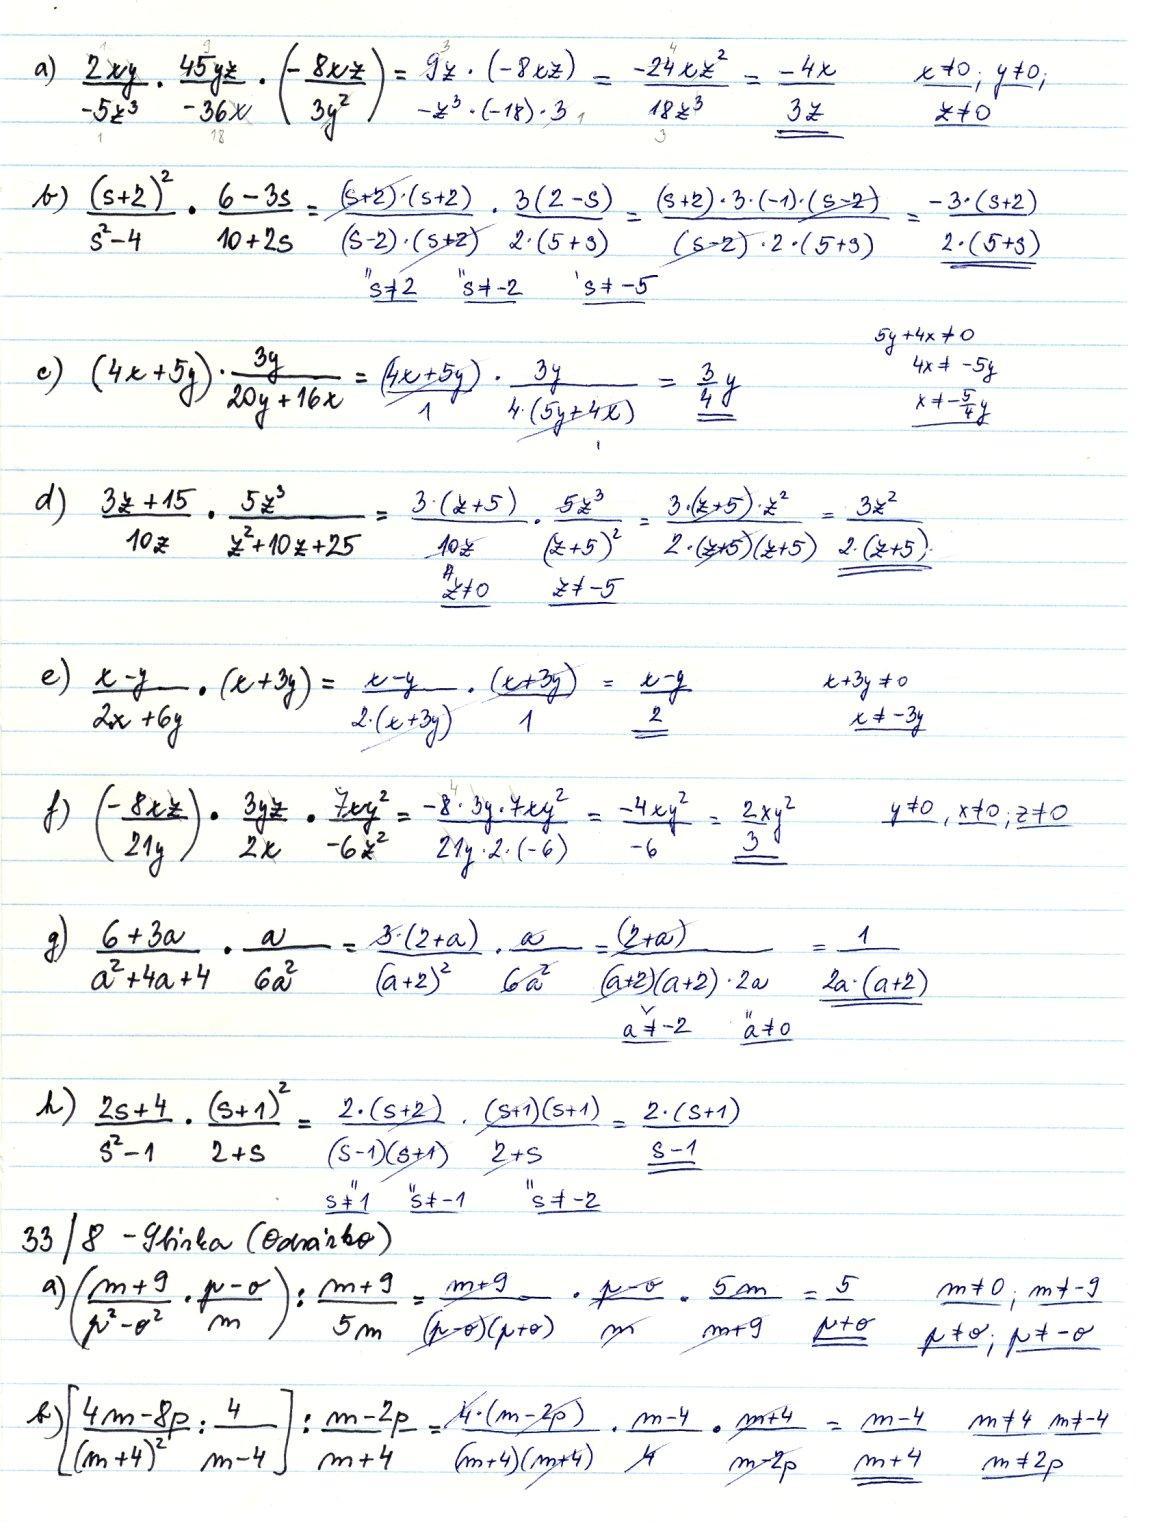 a) \frac{2xy}{-5z^3} · \frac{45yz}{-36x} · (-\frac{8xz}{3y^2}) = \frac{9z·(-8xz)}{-z^3·(-18)·3} = \frac{-24xz^2}{18z^3} = \frac{-4x}{3z} x≠0; y≠0; z≠0
b) \frac{(s+2)^2}{s^2-4} · \frac{6-3s}{10+2s} = \frac{(s+2)·(s+2)}{(s-2)·(s+2)} · \frac{3(2-s)}{2·(5+s)} = \frac{(s+2)·3·(-1)·(s-2)}{(s-2)·2·(5+s)} = \frac{-3·(s+2)}{2·(5+s)}
s≠2 s≠-2 s≠-5
5y+4x≠0
4x≠-5y
c) (4x+5y)·\frac{3y}{20y+16x} = \frac{(4x+5y)}{1} · \frac{3y}{4·(5y+4x)} = \frac{3}{4}y x≠-\frac{5}{4}y
d) \frac{3z+15}{10z} · \frac{5z^3}{z^2+10z+25} = \frac{3·(z+5)}{10z} · \frac{5z^3}{(z+5)^2} = \frac{3·(z+5)·z^2}{2·(z+5)(z+5)} = \frac{3z^2}{2·(z+5)}
z≠0 z≠-5
e) \frac{x-y}{2x+6y} · (x+3y) = \frac{x-y}{2·(x+3y)} · \frac{(x+3y)}{1} = \frac{x-y}{2} x+3y≠0
x≠-3y
f) (-\frac{8xz}{21y}) · \frac{3yz}{2x} · \frac{7xy^2}{-6z^2} = \frac{-8·3y·7xy^2}{21y·2·(-6)} = \frac{-4xy^2}{-6} = \frac{2xy^2}{3} y≠0, x≠0; z≠0
g) \frac{6+3a}{a^2+4a+4} · \frac{a}{6a^2} = \frac{3·(2+a)}{(a+2)^2} · \frac{a}{6a^2} = \frac{(2+a)}{(a+2)(a+2)·2a} = \frac{1}{2a·(a+2)}
a≠-2 a≠0
h) \frac{2s+4}{s^2-1} · \frac{(s+1)^2}{2+s} = \frac{2·(s+2)}{(s-1)(s+1)} · \frac{(s+1)(s+1)}{2+s} = \frac{2·(s+1)}{s-1}
s≠1 s≠-1 s≠-2
33/8 - Sbírka (Odvárko)
a) (\frac{m+9}{p^2-o^2} · \frac{p-o}{m}) : \frac{m+9}{5m} = \frac{m+9}{(p-o)(p+o)} · \frac{p-o}{m} · \frac{5m}{m+9} = \frac{5}{p+o} m≠0; m≠-9
p≠o; p≠-o
b) [\frac{4m-8p}{(m+4)^2} : \frac{4}{m-4}] : \frac{m-2p}{m+4} = \frac{4·(m-2p)}{(m+4)(m+4)} · \frac{m-4}{4} · \frac{m+4}{m-2p} = \frac{m-4}{m+4} m≠4 m≠-4
m≠2p